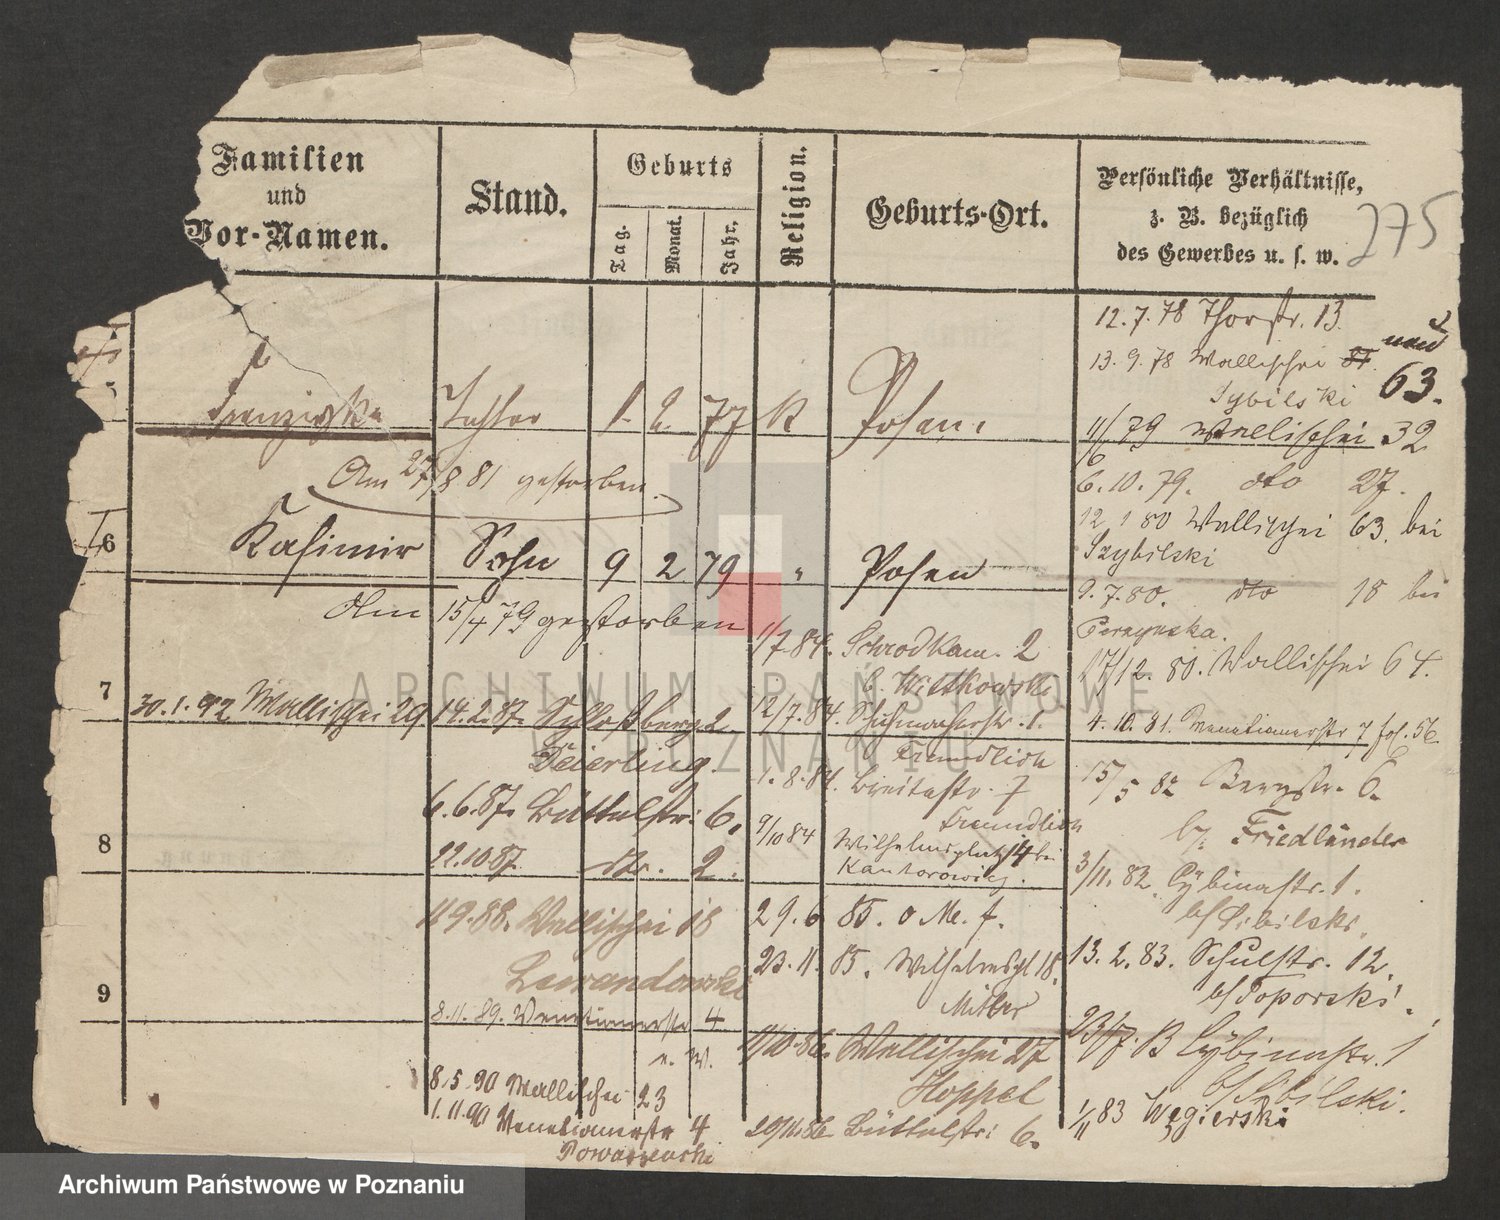 Familien
und
Vor-Namen.
Stand.
Geburts
Tag.
Monat.
Jahr.
Religion.
Geburts-Ort.
Persönliche Verhältnisse,
z. B. bezüglich
des Gewerbes u. s. w.
275
12.7.78 Thorstr. 13.
13.9.78 Wallischei
63.
Franziska Tochter 1. 2. 77 K Posen.
11/6 79 Wallischei 32
Am 27/8 81 gestorben.
6.10.79. dto 27.
6 Kasimir Sohn 9 2 79 " Posen
12 1 80 Wallischei 63. bei
Szybilski
9.7.80. dto 18 bei
Am 15/4 79 gestorben
1/7 84. Schrodkam. 2
b. Wittkowski
17/12. 80. Wallischei 64.
7
30.1.92 Wallischei 29
14.2.87. Schloßberg 2
Beierling.
12/7. 84. Schuhmacherstr. 1.
Freundlich
4.10.81. Venetianerstr 7
1.8.84. Breitestr. 7
Freundlich
15/5 82 Bergstr. 6.
b/ Friedländer
6.6.87. Büttelstr. 6.
9/10 84 Wilhelmsplatz 14 bei
Kantorowicz.
8
22.10 87. 2.
3/11. 82. Cybinastr. 1.
b/ Sibilski.
11 9.88. Wallischei 18
Lewandowski
29.6 85. o Me. f.
23.11. 85. Wilhelmspl 18.
13.2.83. Schulstr. 12.
b/ Toporski.
9
8.11.89. Venetianerstr 4
e. W.
11/10.86. Wallischei 27
Hoppel
23/7. 83 Cybinastr. 1
b/ Sibilski.
8.5.90 Wallischei 23
1.11.90 Venetianerstr 4
20/11.86. Büttelstr: 6.
1/11 83 Węgierski
ARCHIWUM PAŃSTWOWE
W POZNANIU
Archiwum Państwowe w Poznaniu